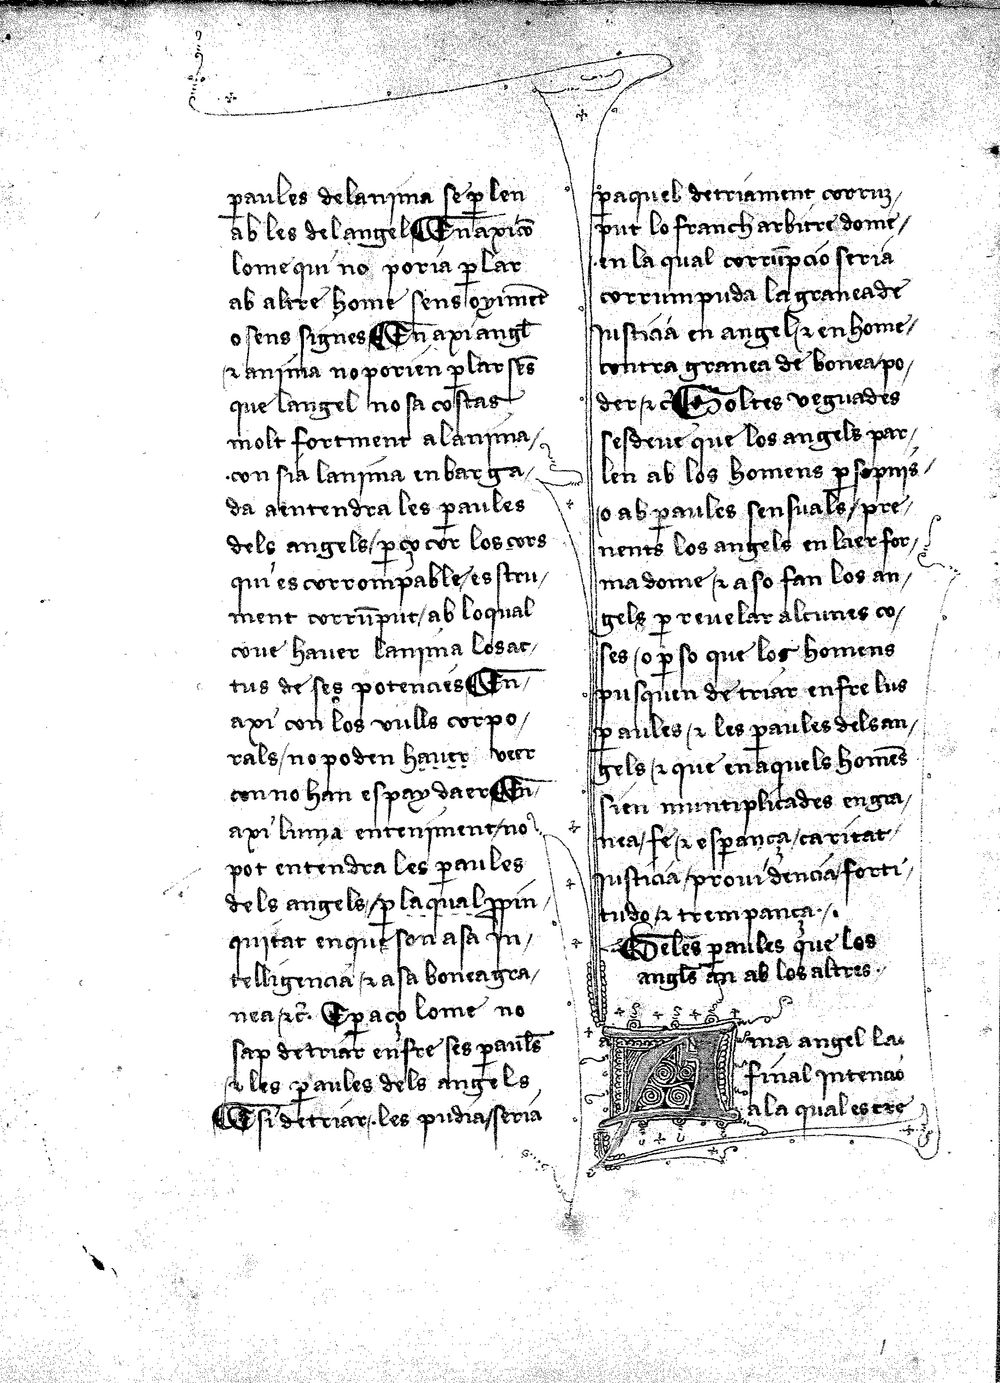 paules delanima se p̲len
ab les delangel En axi cõ
lome qui no poria p̲lar
ab altre home sens oyimẽt
o sens signes En axi angl̃
⁊ anima no porien p̲lar sẽs
que langel no sa costas
molt fortment a lanima/
con sia lanima enbarga/
da aentendra les p̲aules
dels angels/ p̲ço cor los cors
qui es corrompable/ estru/
ment corrũput/ ab loqual
coue hauer lanima losac/
tus de ses potencies En/
axi con los vulls corpo/
rals/ no poden hauer veer
con no han espay daer En/
axi luma enteniment/ no
pot entendra les p̲aules
dels angels/ p̲ laqual p̲pin/
quitat enque son asa in/
telligencia/ ⁊ asa bonea gra/
nea/ ⁊c̃. E p̲ aço lome no
sap detriar enfre ses p̲auls̃
⁊ les p̲aules dels angels
E si detriar les pudia/ seria
p̲aquel detriament corrum/
put lo franch arbitre dome/
en la qual corrũpcio seria
corrumpuda la granea de
justicia en angel/ ⁊ en home/
contra granea de bonea/ po/
der/ ⁊c̃ Moltes veguades
sesdeue que los angels par/
len ab los homens p̲ sopnis/
/o ab p̲aules sensuals/ pre/
nents los angels en laer for/
ma dome/ ⁊ aso fan los an/
gels p̲ reuelar alcunes co/
ses/ o p̲ so que los homens
pusquen detriar enfre lus
p̲aules/ ⁊ les p̲aules dels an/
gels/ ⁊ que enaquels homẽs
sien muntiplicades en gra/
nea/ fe/ ⁊ esp̲ança/ caritat/
justicia/ prouidencia/ forti/
tudo/ ⁊ trempança.
De les p̲aules que los
angls̃ an ab los altres.
Ama angel la
final intencio
a la qual es cre